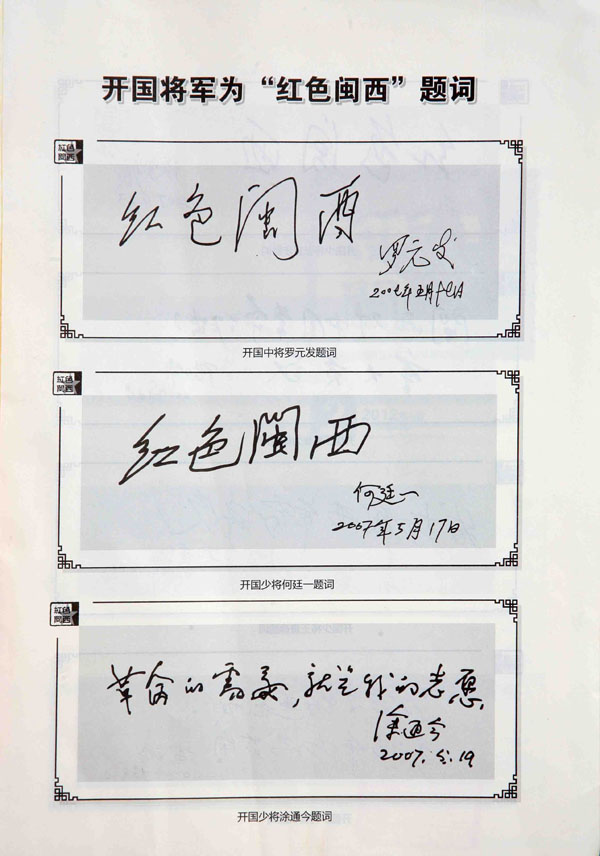 开国将军为“红色闽西”题词
红色
闽西
红色闽西
罗元发
2007年五月十七日
开国中将罗元发题词
红色
闽西
红色闽西
何廷一
2007年5月17日
开国少将何廷一题词
红色
闽西
革命的需要,就是我的志愿
涂通今
2007.5.19
开国少将涂通今题词